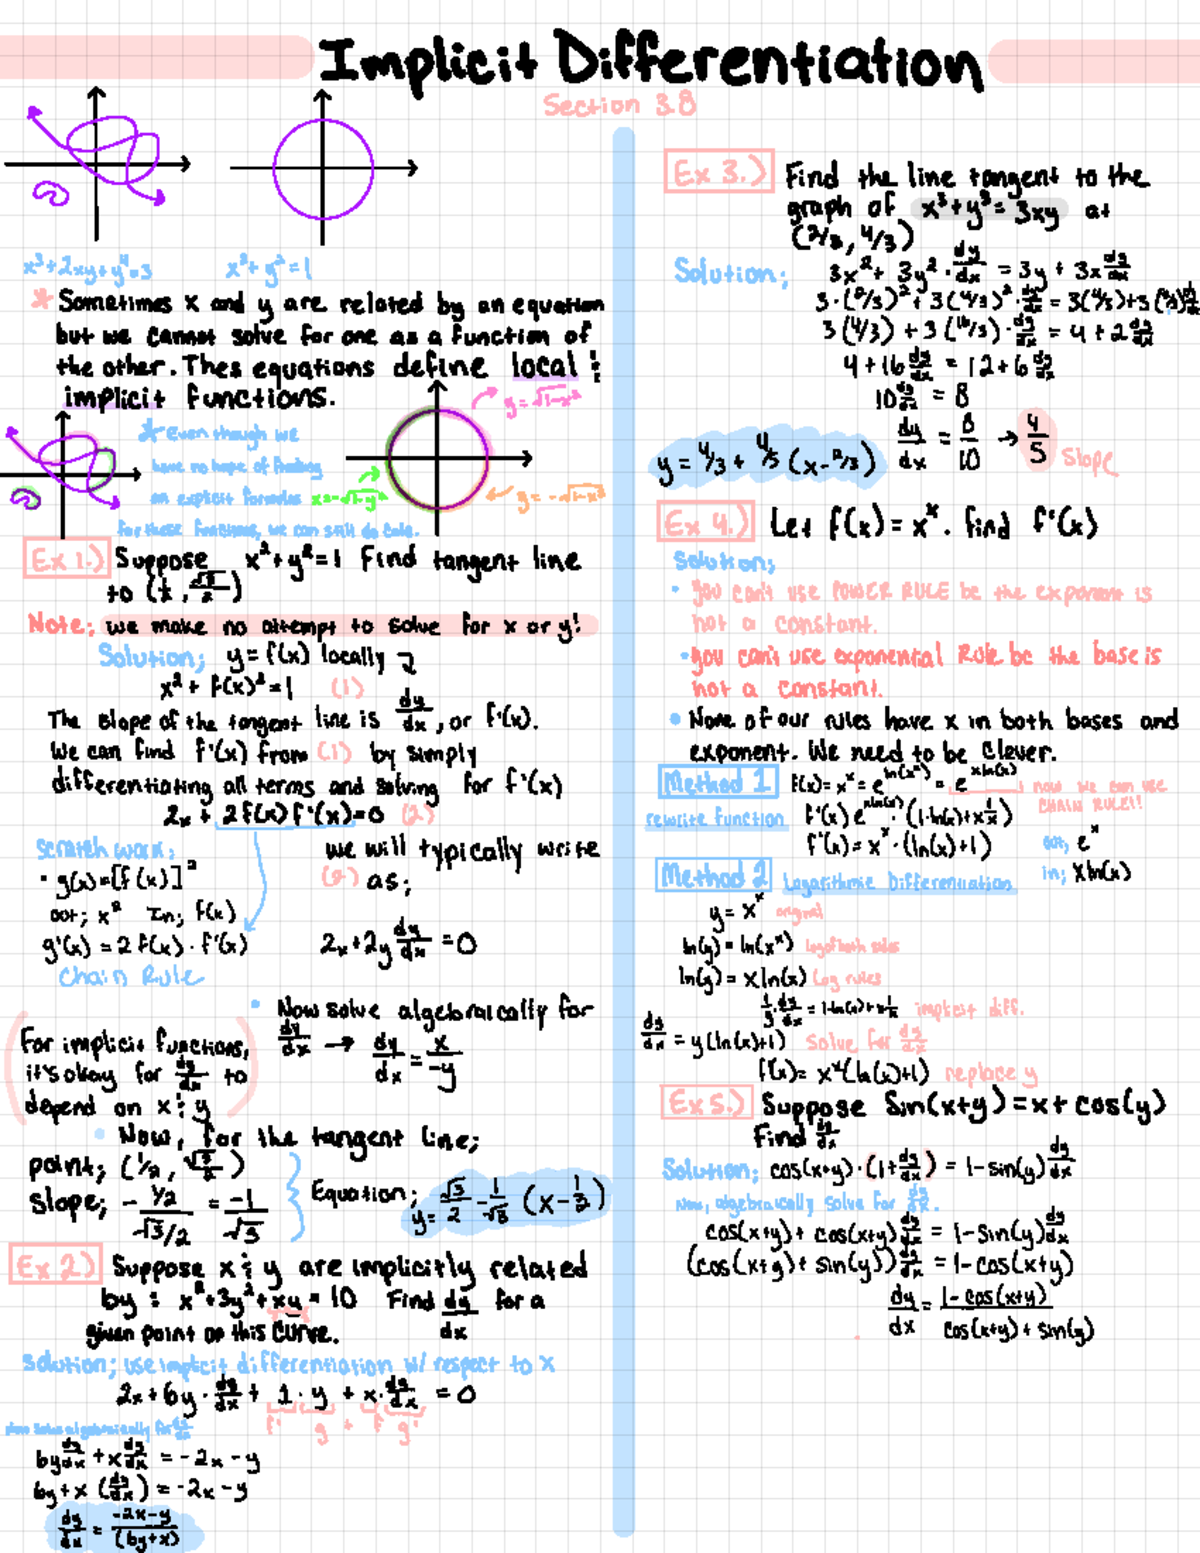 Implicit Differentiation
Section 3.8
x³+2xy+y⁴=3
x²+y²=1
* Sometimes x and y are related by an equation
but we cannot solve for one as a function of
the other. Thes equations define local &
implicit functions.
y=√1-x²
* Even though we
have no hope of finding
an explicit formulas
x=-√1-y²
y=-√1-x²
for these functions, we can still do calc.
Ex 1.) Suppose x²+y²=1 Find tangent line
to (½, √3/2)
Note; we make no attempt to solve for x or y!
Solution; y=f(x) locally
x²+f(x)²=1 (1)
The slope of the tangent line is dy/dx, or f'(x).
We can find f'(x) from (1) by simply
differentiating all terms and solving for f'(x)
2x + 2f(x)f'(x)=0 (2)
Scratch work;
• g(x)=[f(x)]²
out; x² In; f(x)
g'(x) = 2f(x)·f'(x)
Chain Rule
we will typically write
(2) as;
2x+2y dy/dx =0
• Now solve algebraically for
dy/dx → dy/dx = x/-y
(For implicit functions,
it's okay for dy/dx to
depend on x & y)
• Now, for the tangent line;
point; (1/2, √3/2)
Slope; - 1/2 / √3/2 = -1/√3
Equation; y= √3/2 - 1/√3 (x-1/2)
Ex 2) Suppose x & y are implicitly related
by: x²+3y²+xy=10 Find dy/dx for a
given point on this curve.
Solution; use implicit differentiation w/ respect to x
2x+6y·dy/dx + 1·y + x·dy/dx = 0
f' g + f g'
now solve algebraically for dy/dx
6y dy/dx + x dy/dx = -2x-y
6y+x (dy/dx) = -2x-y
dy/dx = -2x-y/(6y+x)
Ex 3.) Find the line tangent to the
graph of x³+y³=3xy at
(2/3, 4/3)
Solution; 3x²+3y²·dy/dx = 3y+3x dy/dx
3·(2/3)²+3(4/3)²·dy/dx = 3(4/3)+3(2/3)dy/dx
3(4/3) + 3(16/3)·dy/dx = 4+2 dy/dx
4+16 dy/dx = 12+6 dy/dx
10 dy/dx = 8
dy/dx = 8/10 → 4/5 Slope
y = 4/3 + 4/5 (x-2/3)
Ex 4.) Let f(x)=xˣ. find f'(x)
Solution;
• you can't use POWER RULE bc the exponent is
not a constant.
• you can't use exponential Rule bc the base is
not a constant.
• None of our rules have x in both bases and
exponent. We need to be clever.
Method 1 f(x)=xˣ=e^ln(xˣ) = e^xln(x) now we can use
CHAIN RULE!!
rewrite function f'(x) e^xln(x)·(1·ln(x)+x 1/x)
f'(x)=xˣ·(ln(x)+1)
out; eˣ
in; xln(x)
Method 2 Logarithmic Differentiation
y=xˣ original
ln(y)=ln(xˣ) log of both sides
ln(y)=xln(x) Log rules
1/y·dy/dx = 1·ln(x)+x 1/x implicit diff.
dy/dx = y(ln(x)+1) Solve for dy/dx
f'(x)= xˣ(ln(x)+1) replace y
Ex 5.) Suppose Sin(x+y)=x+cos(y)
Find dy/dx
Solution; cos(x+y)·(1+dy/dx) = 1-sin(y)dy/dx
Now, algebraically solve for dy/dx.
cos(x+y)+cos(x+y)dy/dx = 1-sin(y)dy/dx
(cos(x+y)+sin(y))dy/dx = 1-cos(x+y)
dy/dx = 1-cos(x+y)/cos(x+y)+sin(y)